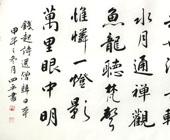 水月通禪觀
魚龍聽梵聲
惟憐一燈影
萬里眼中明
錢起詩送僧歸日本
甲午之冬月四五書